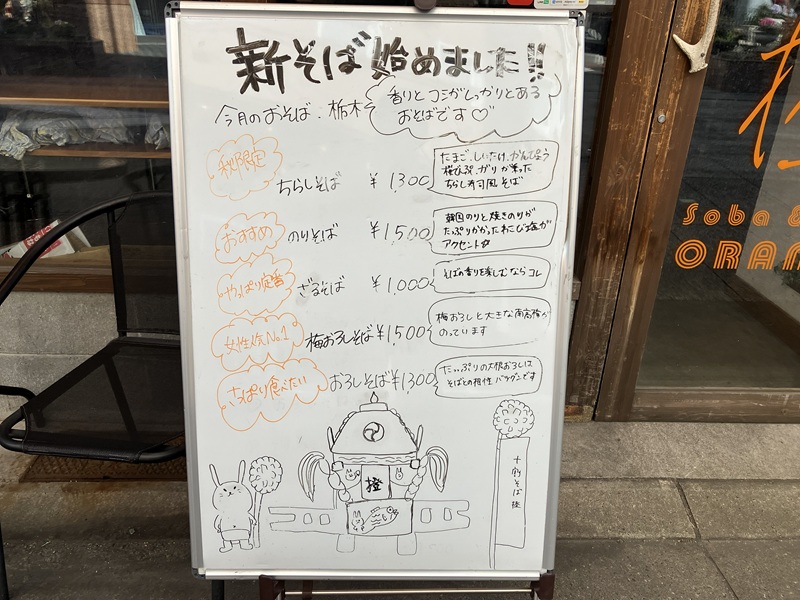 新そば始めました!!
今月のおそば:栃木
香りとコシがしっかりとある
おそばです♡
秋限定
ちらしそば ¥1,300
たまご、しいたけ、かんぴょう
桜でんぶ、ガリが乗った
ちらし寿司風そば
おすすめ
のりそば ¥1,500
韓国のりと焼きのりが
たっぷりかかったわさび塩が
アクセント☆
やっぱり定番
ざるそば ¥1,000
そばの香りを楽しむならコレ
女性人気No.1
梅おろしそば ¥1,500
梅おろしと大きな南高梅が
のっています
さっぱり食べたい
おろしそば ¥1,300
たっぷりの大根おろしは
そばとの相性バツグンです
橙
十割そば 橙
Soba &
ORAN